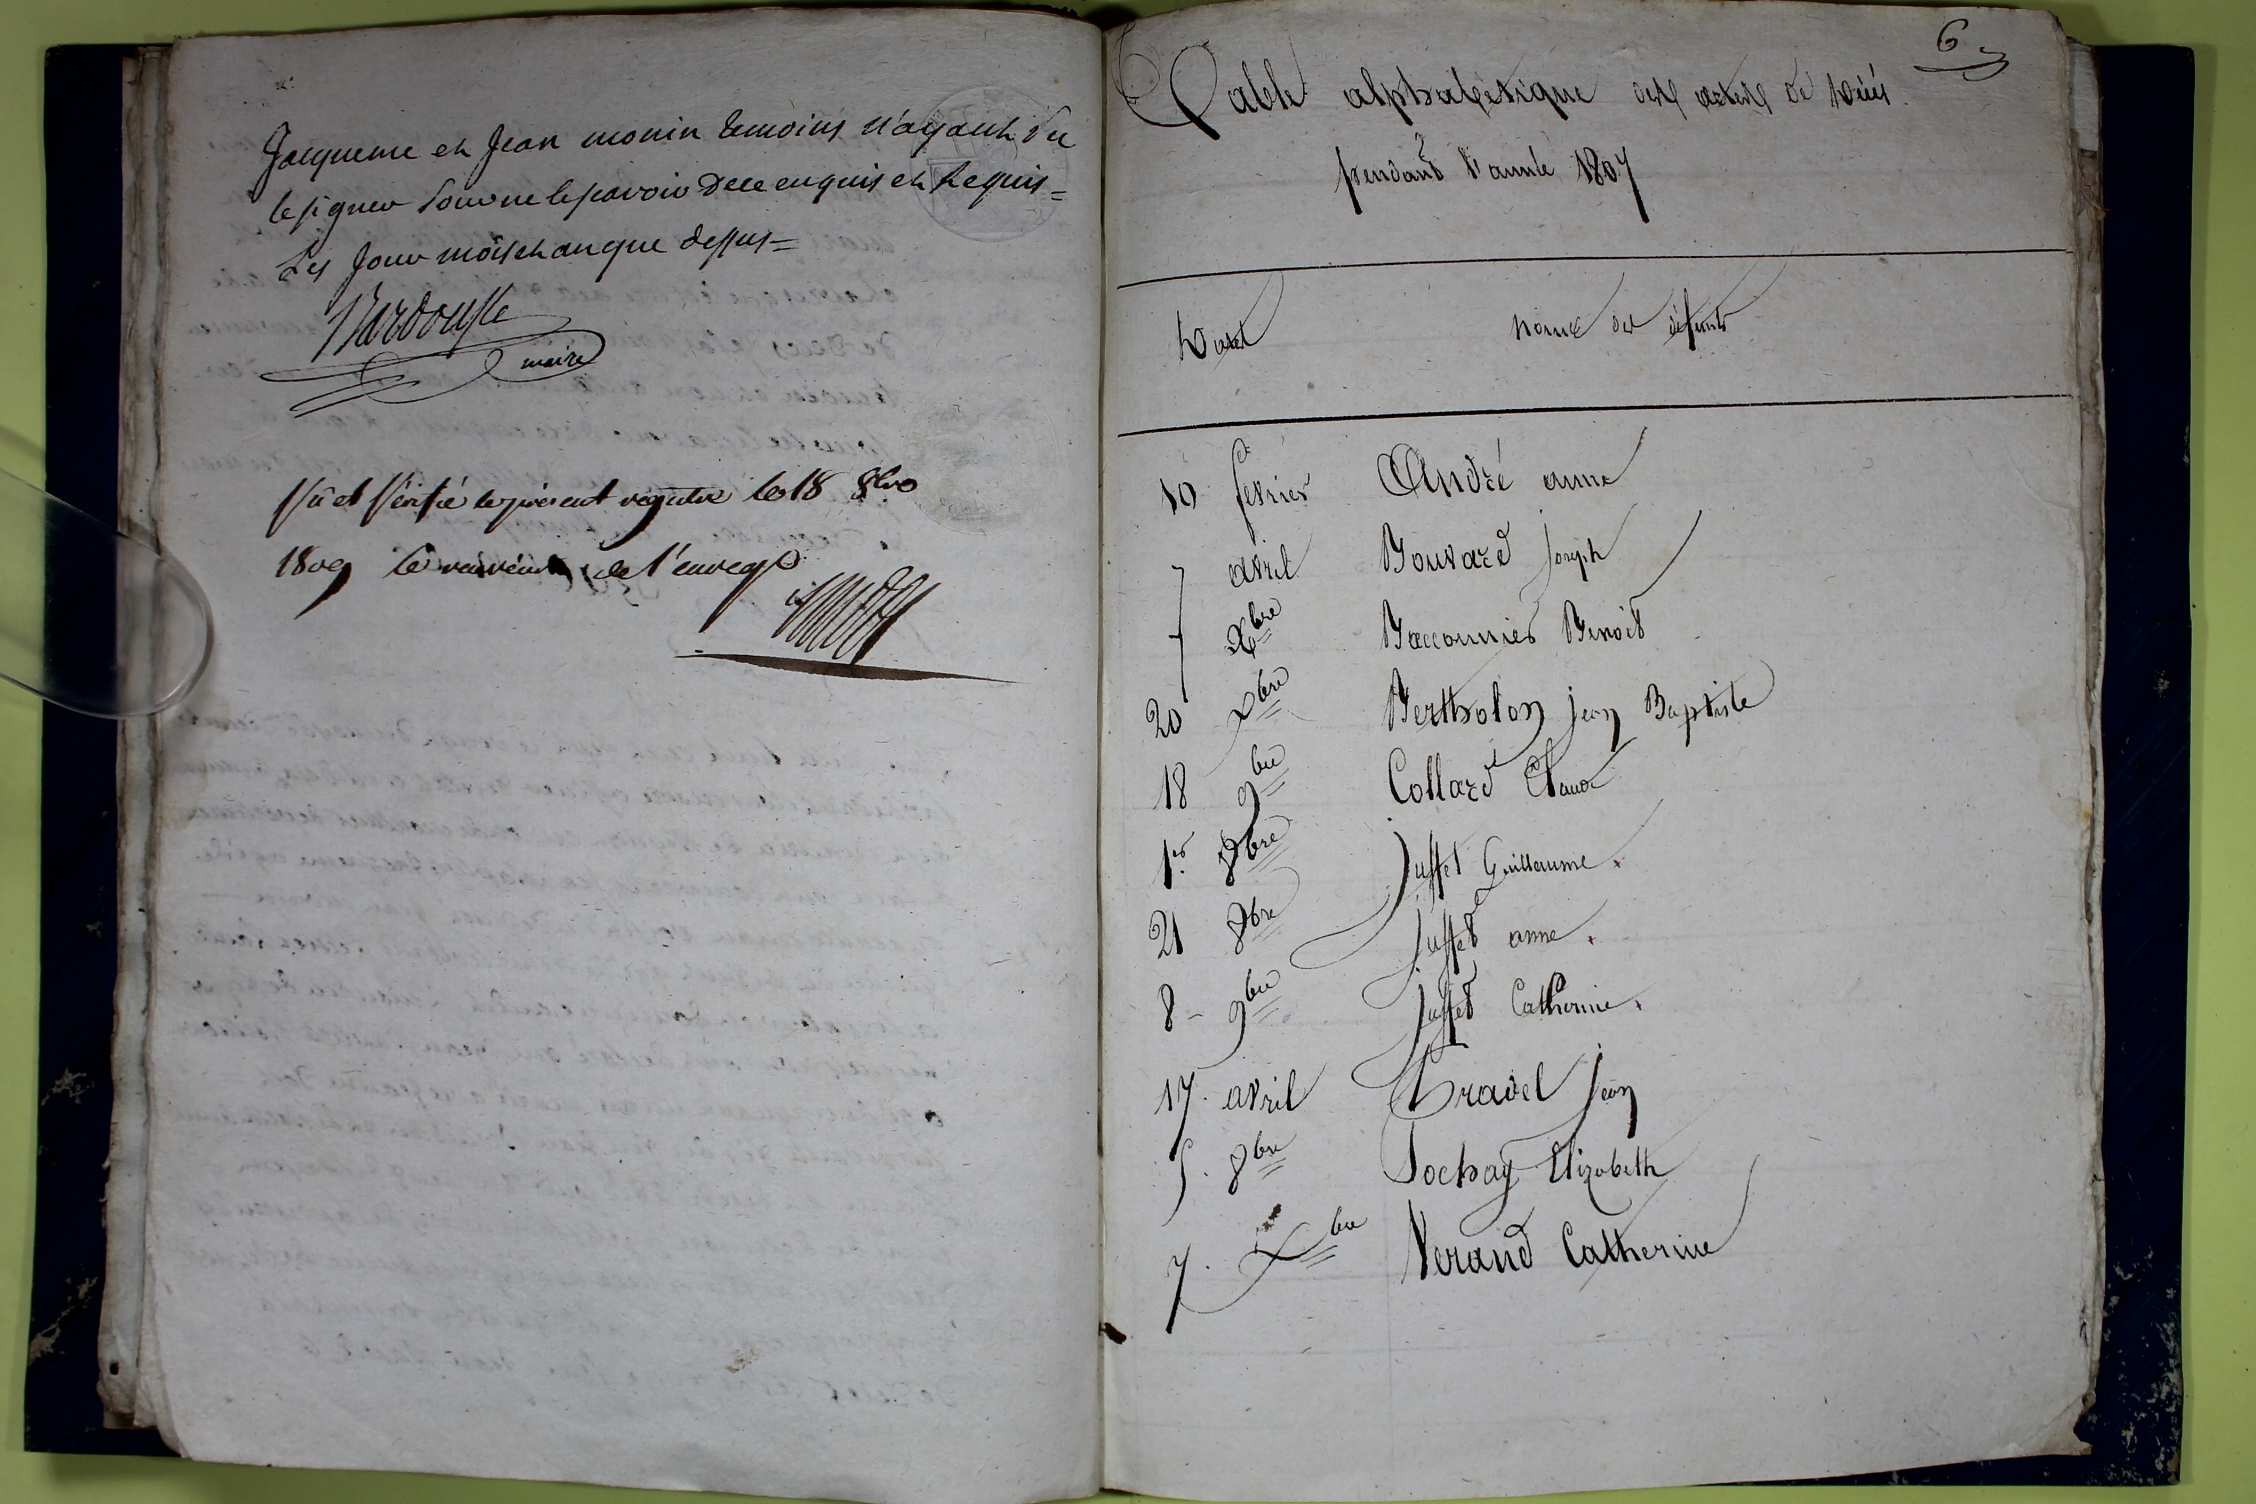 Jacqueme et Jean monin temoins n'ayant su
le signer pour ne le savoir de ce enquis et Requis =
Les jour mois et an que dessus =
maire
Vû et Vérifié le présent registre le 18 8bre
1809 le receveur de l'enregt
6
Table alphabétique des actes de décès
pendant l'année 1807
Dates
Noms des défunts
10 février André anne
7 avril Bouvard Joseph
7 Xbre Bacconnier Benoit
20 Xbre Bertholon Jean Baptiste
18 9bre Collard Claude
1er 8bre Juffet Guillaume
21 8bre Juffet anne
8 - 9bre Juffet Catherine
17 avril Pravel Jean
5 8bre Sochay Elizabeth
7 Xbre Verand Catherine